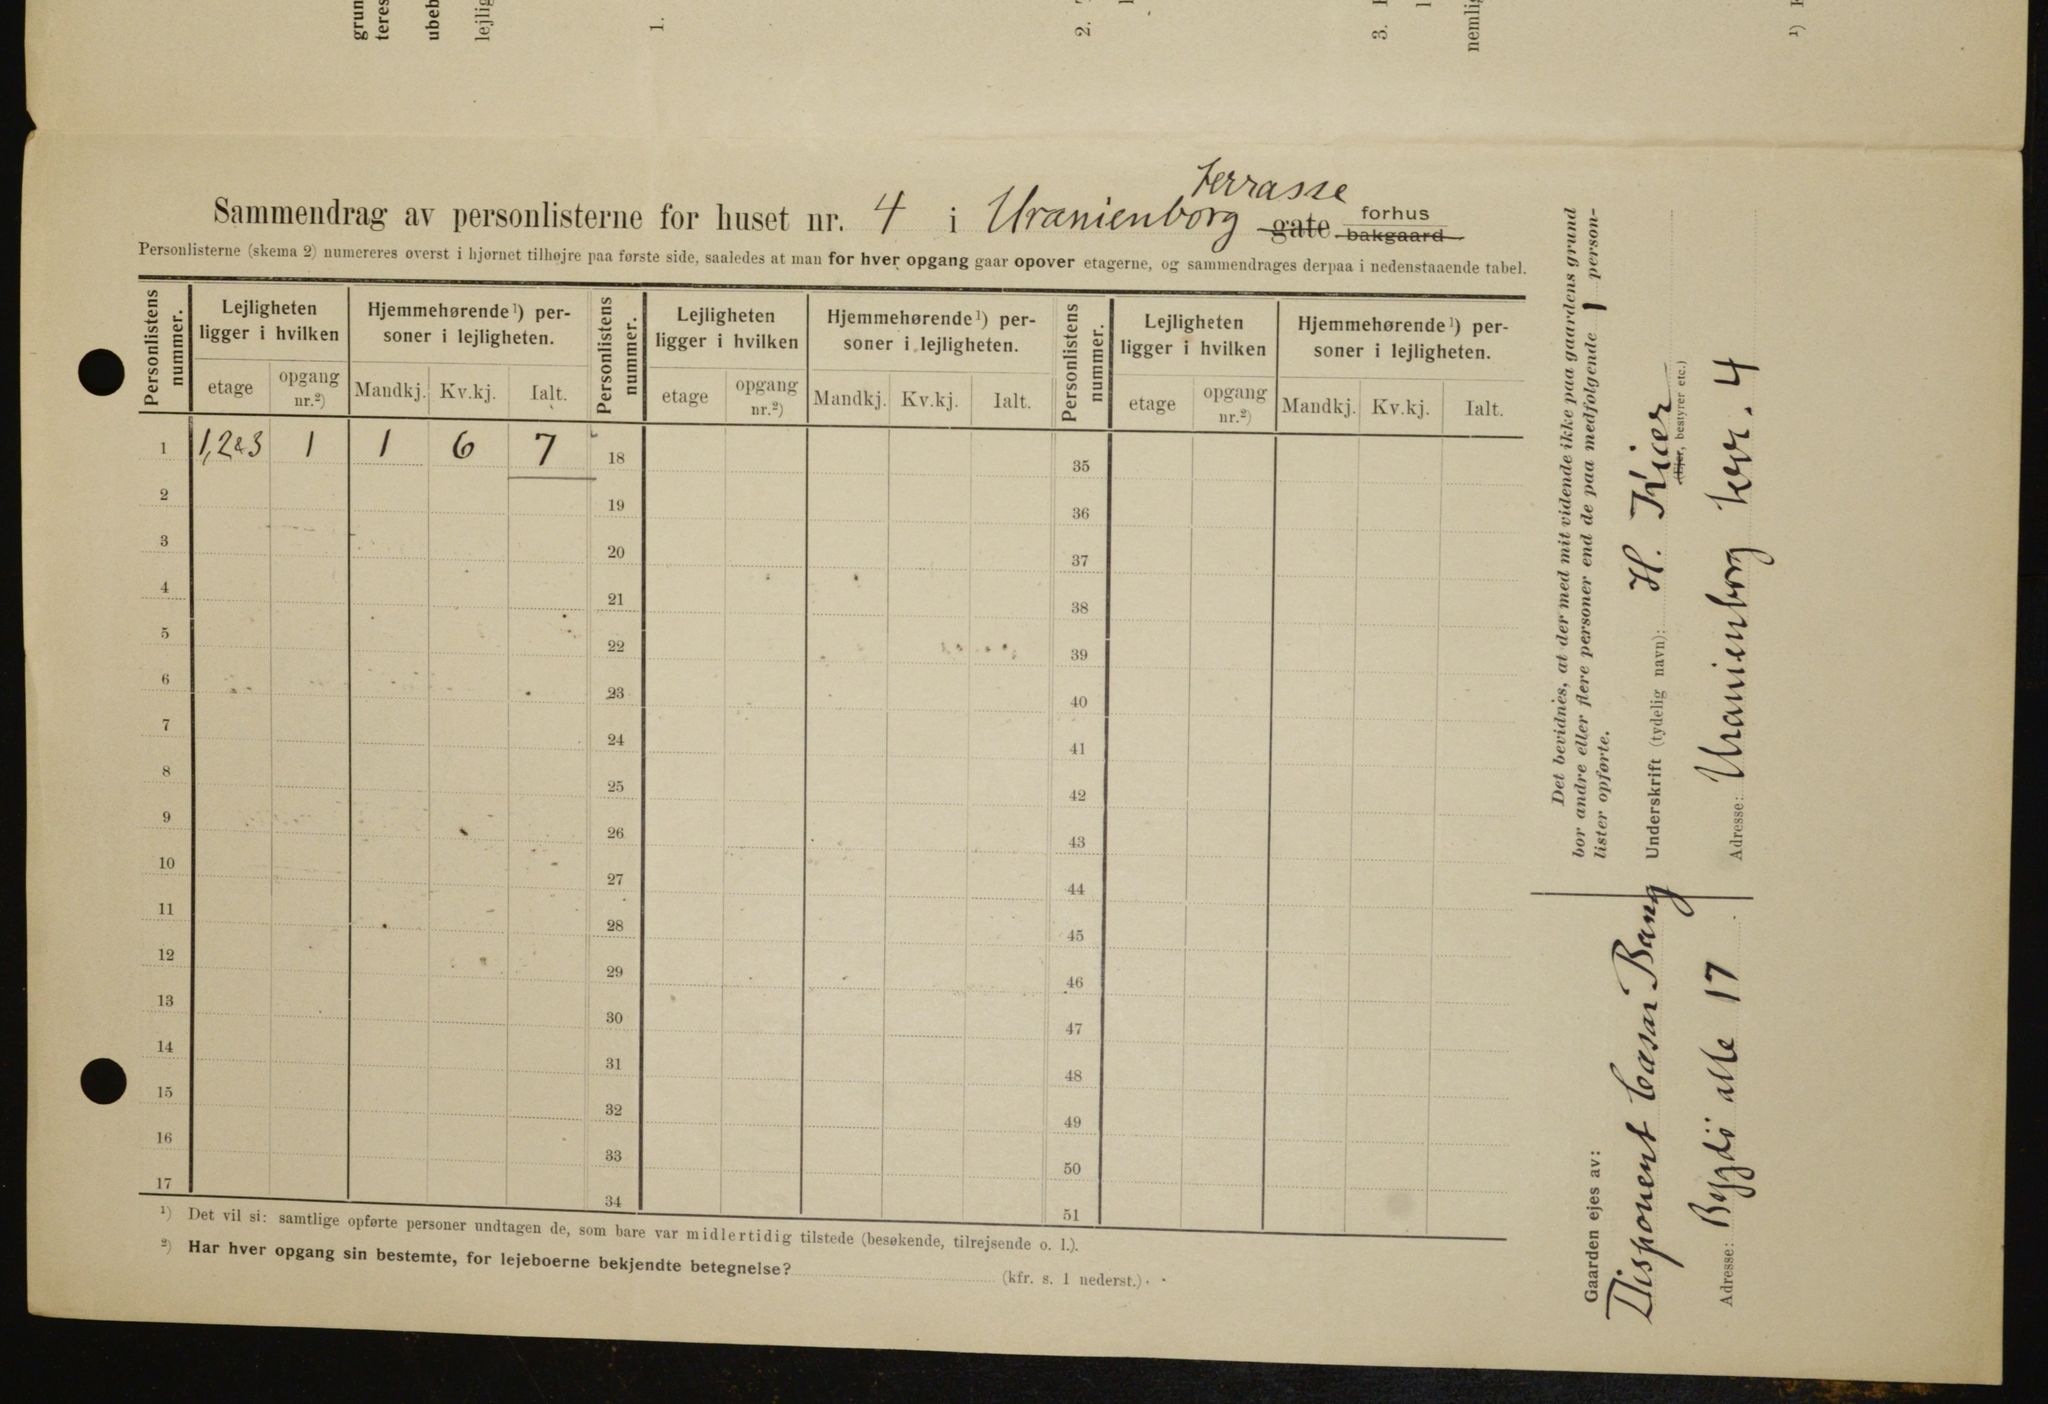 grun
teres
ubeb
lejlig
1.
2.
3.
nemlig
¹)
terrasse
Sammendrag av personlisterne for huset nr. 4 i Uranienborg gate forhus bakgaard
Personlisterne (skema 2) numereres øverst i hjørnet tilhøjre paa første side, saaledes at man for hver opgang gaar opover etagerne, og sammendrages derpaa i nedenstaaende tabel.
Personlistens nummer. Lejligheten ligger i hvilken Hjemmehørende¹) personer i lejligheten. Personlistens nummer. Lejligheten ligger i hvilken Hjemmehørende¹) personer i lejligheten. Personlistens nummer. Lejligheten ligger i hvilken Hjemmehørende¹) personer i lejligheten.
etage opgang nr.²) Mandkj. Kv.kj. Ialt. etage opgang nr.²) Mandkj. Kv.kj. Ialt. etage opgang nr.²) Mandkj. Kv.kj. Ialt.
1 1,2&3 1 1 6 7 18 35
2 19 36
3 20 37
4 21 38
5 22 39
6 23 40
7 24 41
8 25 42
9 26 43
10 27 44
11 28 45
12 29 46
13 30 47
14 31 48
15 32 49
16 33 50
17 34 51
¹) Det vil si: samtlige opførte personer undtagen de, som bare var midlertidig tilstede (besøkende, tilrejsende o. l.).
²) Har hver opgang sin bestemte, for lejeboerne bekjendte betegnelse? (kfr. s. 1 nederst.)
Det bevidnes, at der med mit vidende ikke paa gaardens grund
bor andre eller flere personer end de paa medfølgende 1 person-
lister opførte.
Underskrift (tydelig navn): H. Kiær
(Ejer, bestyrer etc.)
Adresse: Uranienborg terr. 4
Gaarden ejes av:
Disponent Cæsar Bang
Adresse: Bygdö alle 17